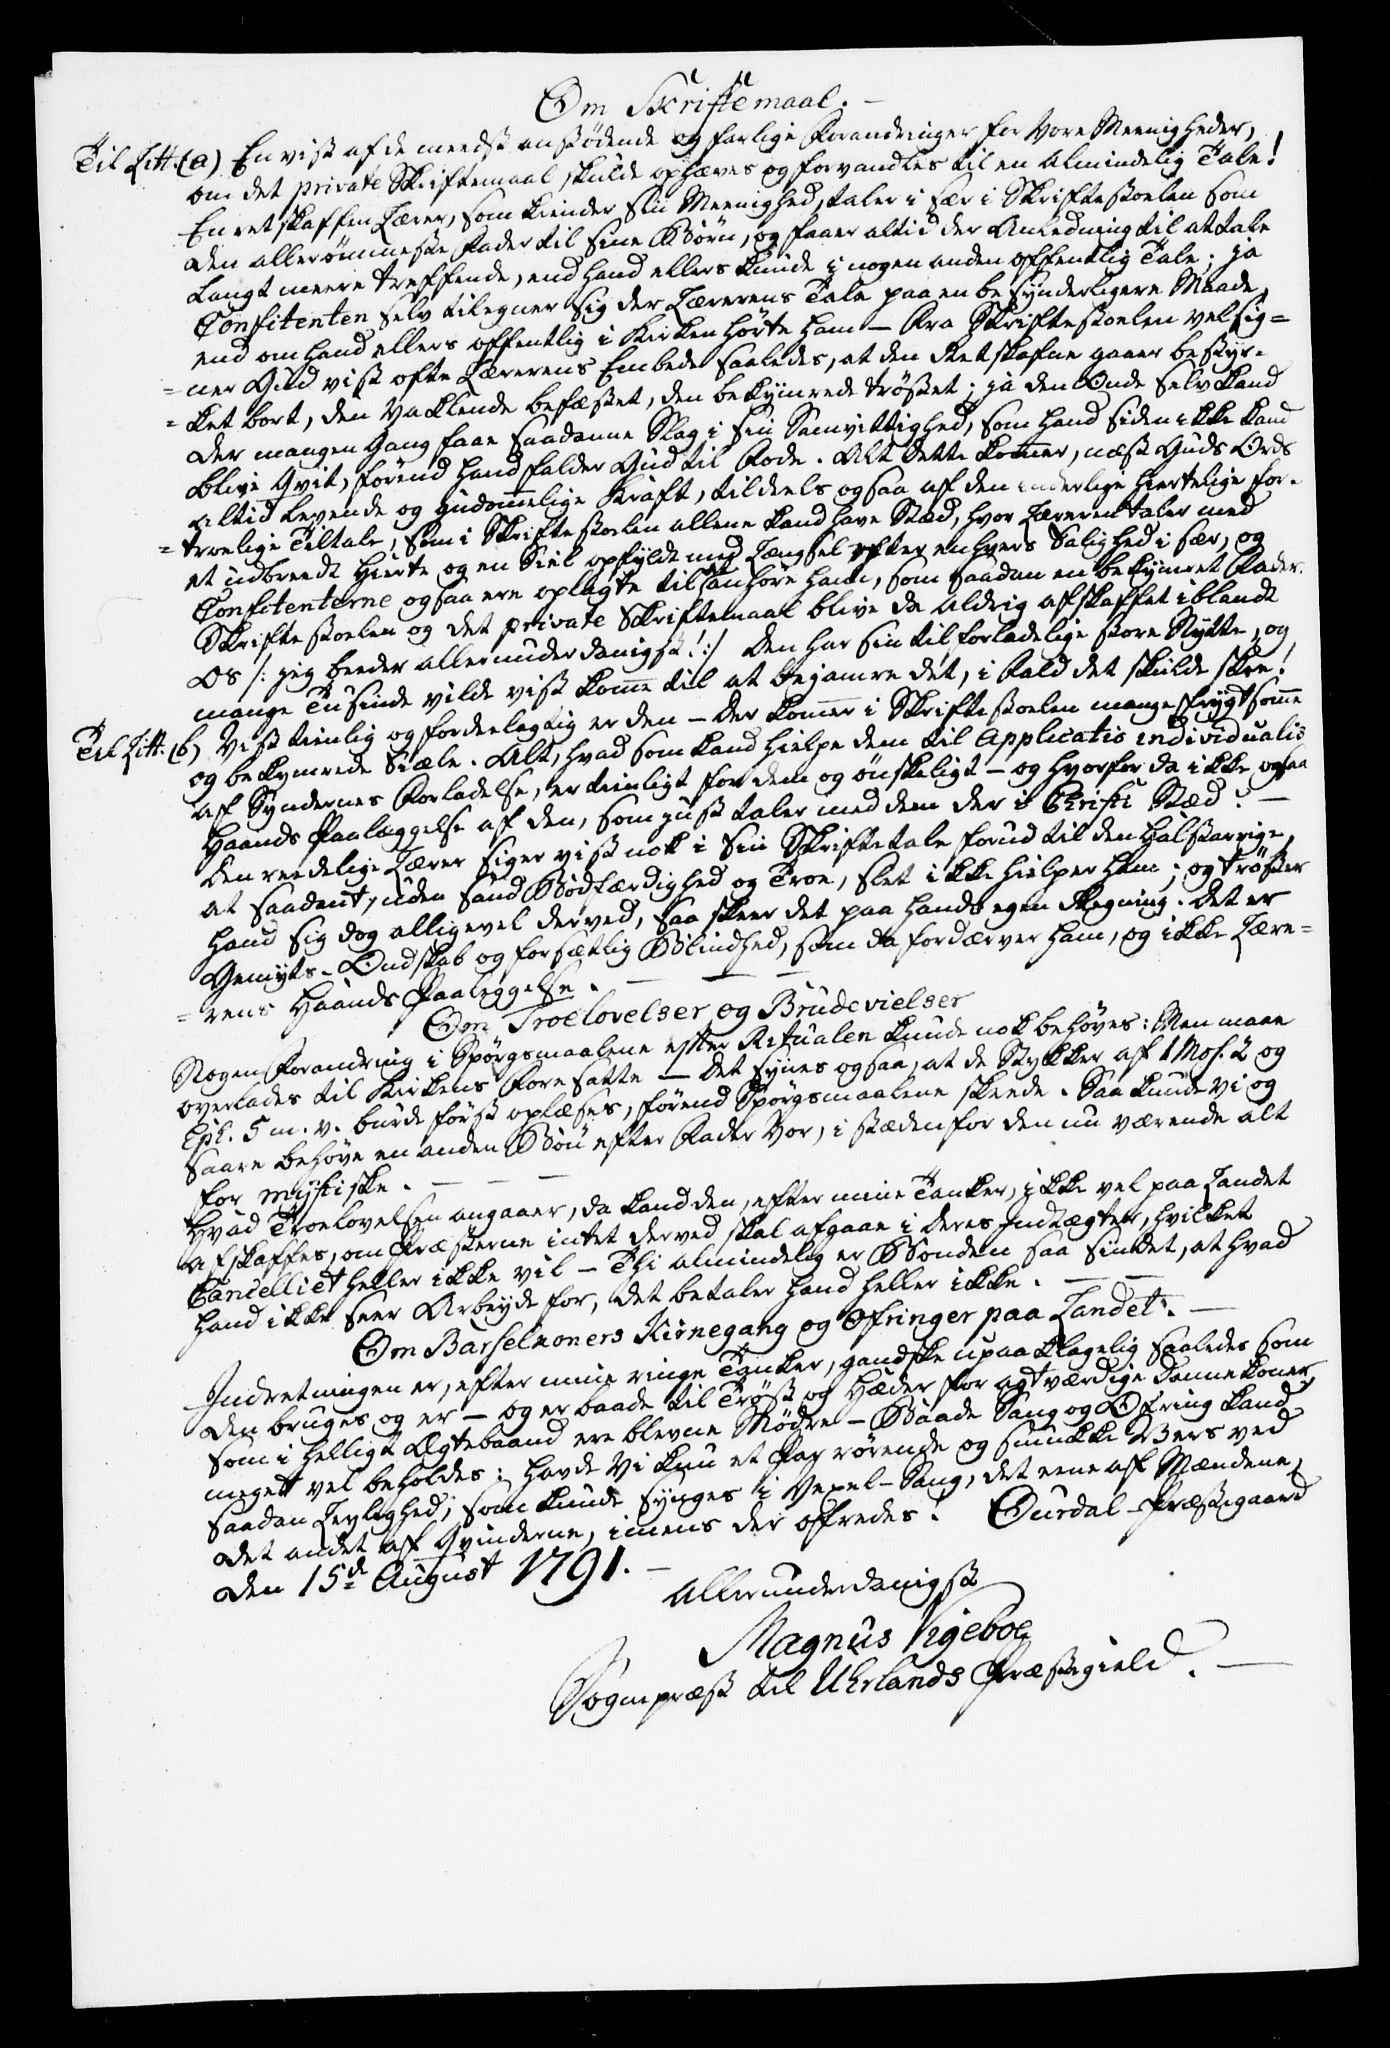 Om Skriftemaal. —
Til Litt. (a) En vist af de meedst anstødende og farlige Forandringer for vore Meenigheder,
om det private Skriftemaal skulde ophæves og forvandles til en almindelig Tale!
En retskaffen Lærer, som kiender sin Meenighed, taler i sær i Skriftestoelen som
den allerømmeste Fader til sine Børn, og faaer altid der Anledning til at tale
langt meere treffende, end hand ellers kunde i nogen anden offentlig Tale; ja
Confitenten selv tilegner sig der Lærerens Tale paa en besynderligere Maade,
end om hand ellers offentlig i Kirken hørte ham — Fra Skriftestoelen velsig=
=ner Gud vist ofte Lærerens Embede saaledes, at den Retskafne gaaer bestyr=
=ket bort, den vaklende befæstet, den bekymrede trøstet; ja den Onde selv kand
der mangen Gang faae saadanne Slag i sin Samvittighed, som hand siden ikke kand
blive qvit, førend hand falder Gud til Fode. Alt dette kommer, næst Guds Ords
altid levende og guddommelige Kraft, tildeels ogsaa af den inderlige hiertelige for=
=troelige Tiltale, som i Skriftestoelen allene kand have Stæd, hvor Læreren taler med
et udbreedt Hierte og en Siel opfyldt med Længsel efter enhvers Salighed i sær, og
Confitenterne ogsaa ere oplagte til at anhøre ham, som saadan en bekymret Fader.
Skriftestoelen og det private Skriftemaal blive da aldrig afskaffet iblandt
os /: jeg beeder allerunderdanigst! :/ Den har sin tilforladelige store Nytte, og
mange Tusinde vilde vist komme til at bejamre det, i Fald det skulde skee!
Til Litt. (b) Vist tienlig og fordeelagtig er den — Der kommer i Skriftestoelen mange frygtsomme
og bekymrede Siæle. Alt, hvad som kand hielpe dem til Applicatio individualis
af Syndernes Forladelse, er tienligt for dem og ønskeligt — og hvorfor da ikke ogsaa
Haands Paalæggelse af den, som just taler med dem der i Christi Stæd? —
Den reedelige Lærer siger vist nok i sin Skriftetale forud til den halsstarrige,
at saadant, uden sand Bodfærdighed og Troe, slet ikke hielper ham; og trøster
hand sig dog alligevel derved, saa skeer det paa hands egen Regning. Det er
Gemyts-Ondskab og forsætlig Blindhed, som da fordærver ham, og ikke Lære=
=rens Haands Paaleggelse. — — —
Om Troelovelser og Brudevielser
Nogen Forandring i Spørgsmaalene efter Ritualen kunde nok behøves: Men maae
overlades til Kirkens Foresatte — Det synes ogsaa, at de Stykker af 1 Mos. 2 og
Eph. 5 m. v. burde først oplæses, førend Spørgsmaalene skeede. Saa kunde vi og
saare behøve en anden Bøn efter Fader Vor, i stæden for den nu værende alt
for mystiske. — — —
Hvad Troelovelsen angaaer, da kand den, efter mine Tanker, ikke vel paa Landet
afskaffes, om Præsterne intet derved skal afgaae i deres Indtægter, hvilket
Cancelliet heller ikke vil — Thi almindelig er Bonden saa sindet, at hvad
hand ikke seer Arbeyde for, det betaler hand heller ikke. — —
Om Barselkoners Kirkegang og Ofringer paa Landet. —
Indretningen er, efter mine ringe Tanker, gandske upaaklagelig saaledes som
den bruges og er — og er baade til Trøst og Hæder for agtværdige Dannekoner,
som i helligt Ægtebaand ere blevne Mødre — Baade Sang og Ofring kand
meget vel beholdes: havde vi kun et Par rørende og smukke Vers ved
saadan Leylighed, som kunde synges i Vexel-Sang, det eene af Mændene,
det andet af Qvinderne, imens der ofredes! Ourdal-Præstegaard
den 15de August 1791. —
Allerunderdanigst
Magnus Vigeboe
Sognepræst til Uhrlands Præstegield. —